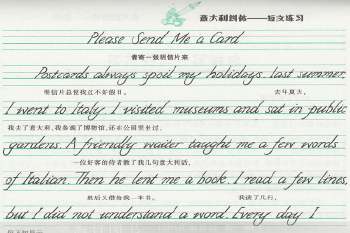 意大利斜体——短文练习
Please Send Me a Card
请寄一张明信片来
Postcards always spoil my holidays. last summer,
明信片总使我过不好假日。 去年夏天,
I went to Italy. I visited museums and sat in public
我去了意大利。我参观了博物馆,还在公园里坐过。
gardens. A friendly waiter taught me a few words
一位好客的侍者教了我几句意大利语,
of Italian. Then he lent me a book. I read a few lines,
然后又借给我一本书。 我读了几行,
but I did not understand a word. Every day I